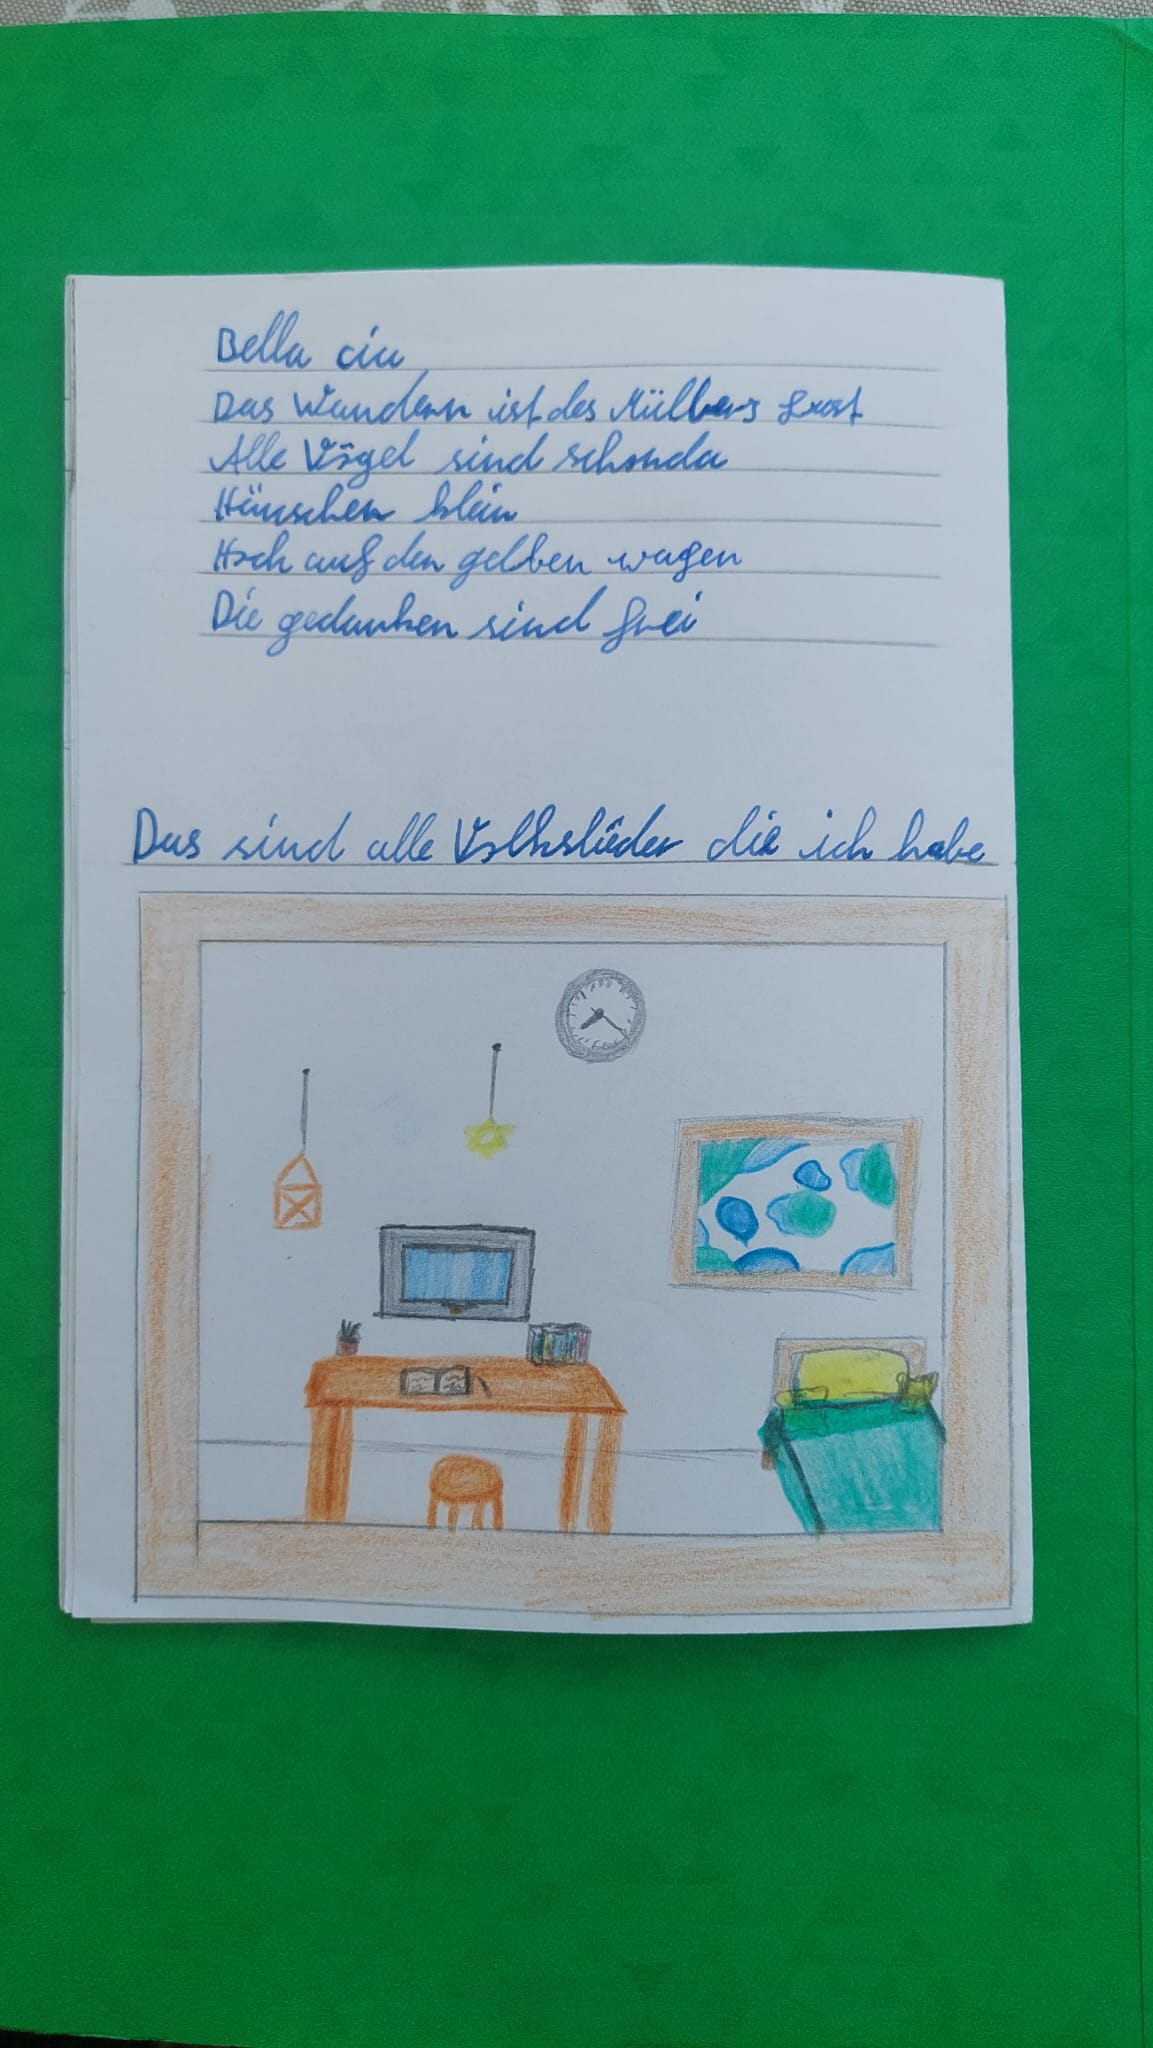 Bella ciu
Das Wandern ist des Müllers
Alle Vögel sind schonda
Hänschen klein
Hoch auf den gelben wagen
Die gedanken sind frei
Das sind alle Volkslieder die ich habe